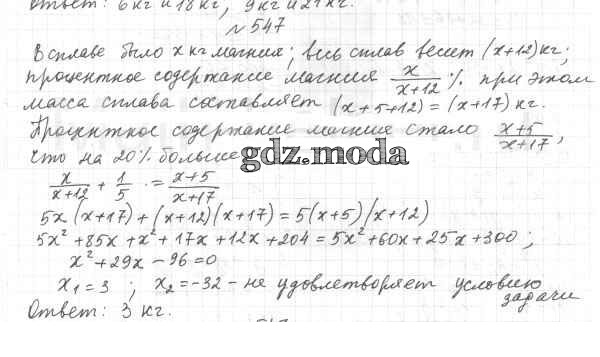 Ответ: 6 кг и 18 кг, 9 кг и 21 кг.
№ 547
В сплаве было x кг магния; весь сплав весит (x+12) кг;
процентное содержание магния x/(x+12) % при этом
масса сплава составляет (x+5+12) = (x+17) кг.
Процентное содержание магние стало (x+5)/(x+17),
что на 20% больше
gdz.moda
x/(x+12) + 1/5 ·= (x+5)/(x+17)
5x(x+17)+(x+12)(x+17)=5(x+5)(x+12)
5x²+85x+x²+17x+12x+204=5x²+60x+25x+300;
x²+29x-96=0
x₁=3 ; x₂=-32 - не удовлетворяет условию
задачи
Ответ: 3 кг.